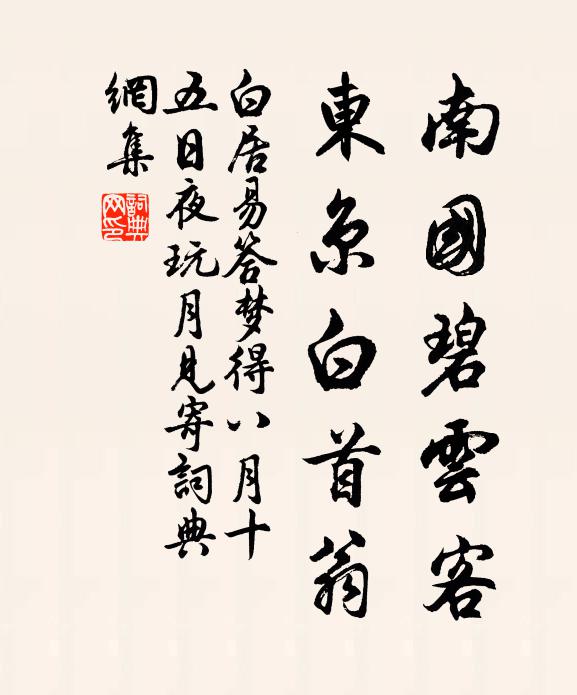 南國碧雲客
東京白首翁
白居易答梦得八月十
五日夜玩月見寄詞典
網集
詞典
网印